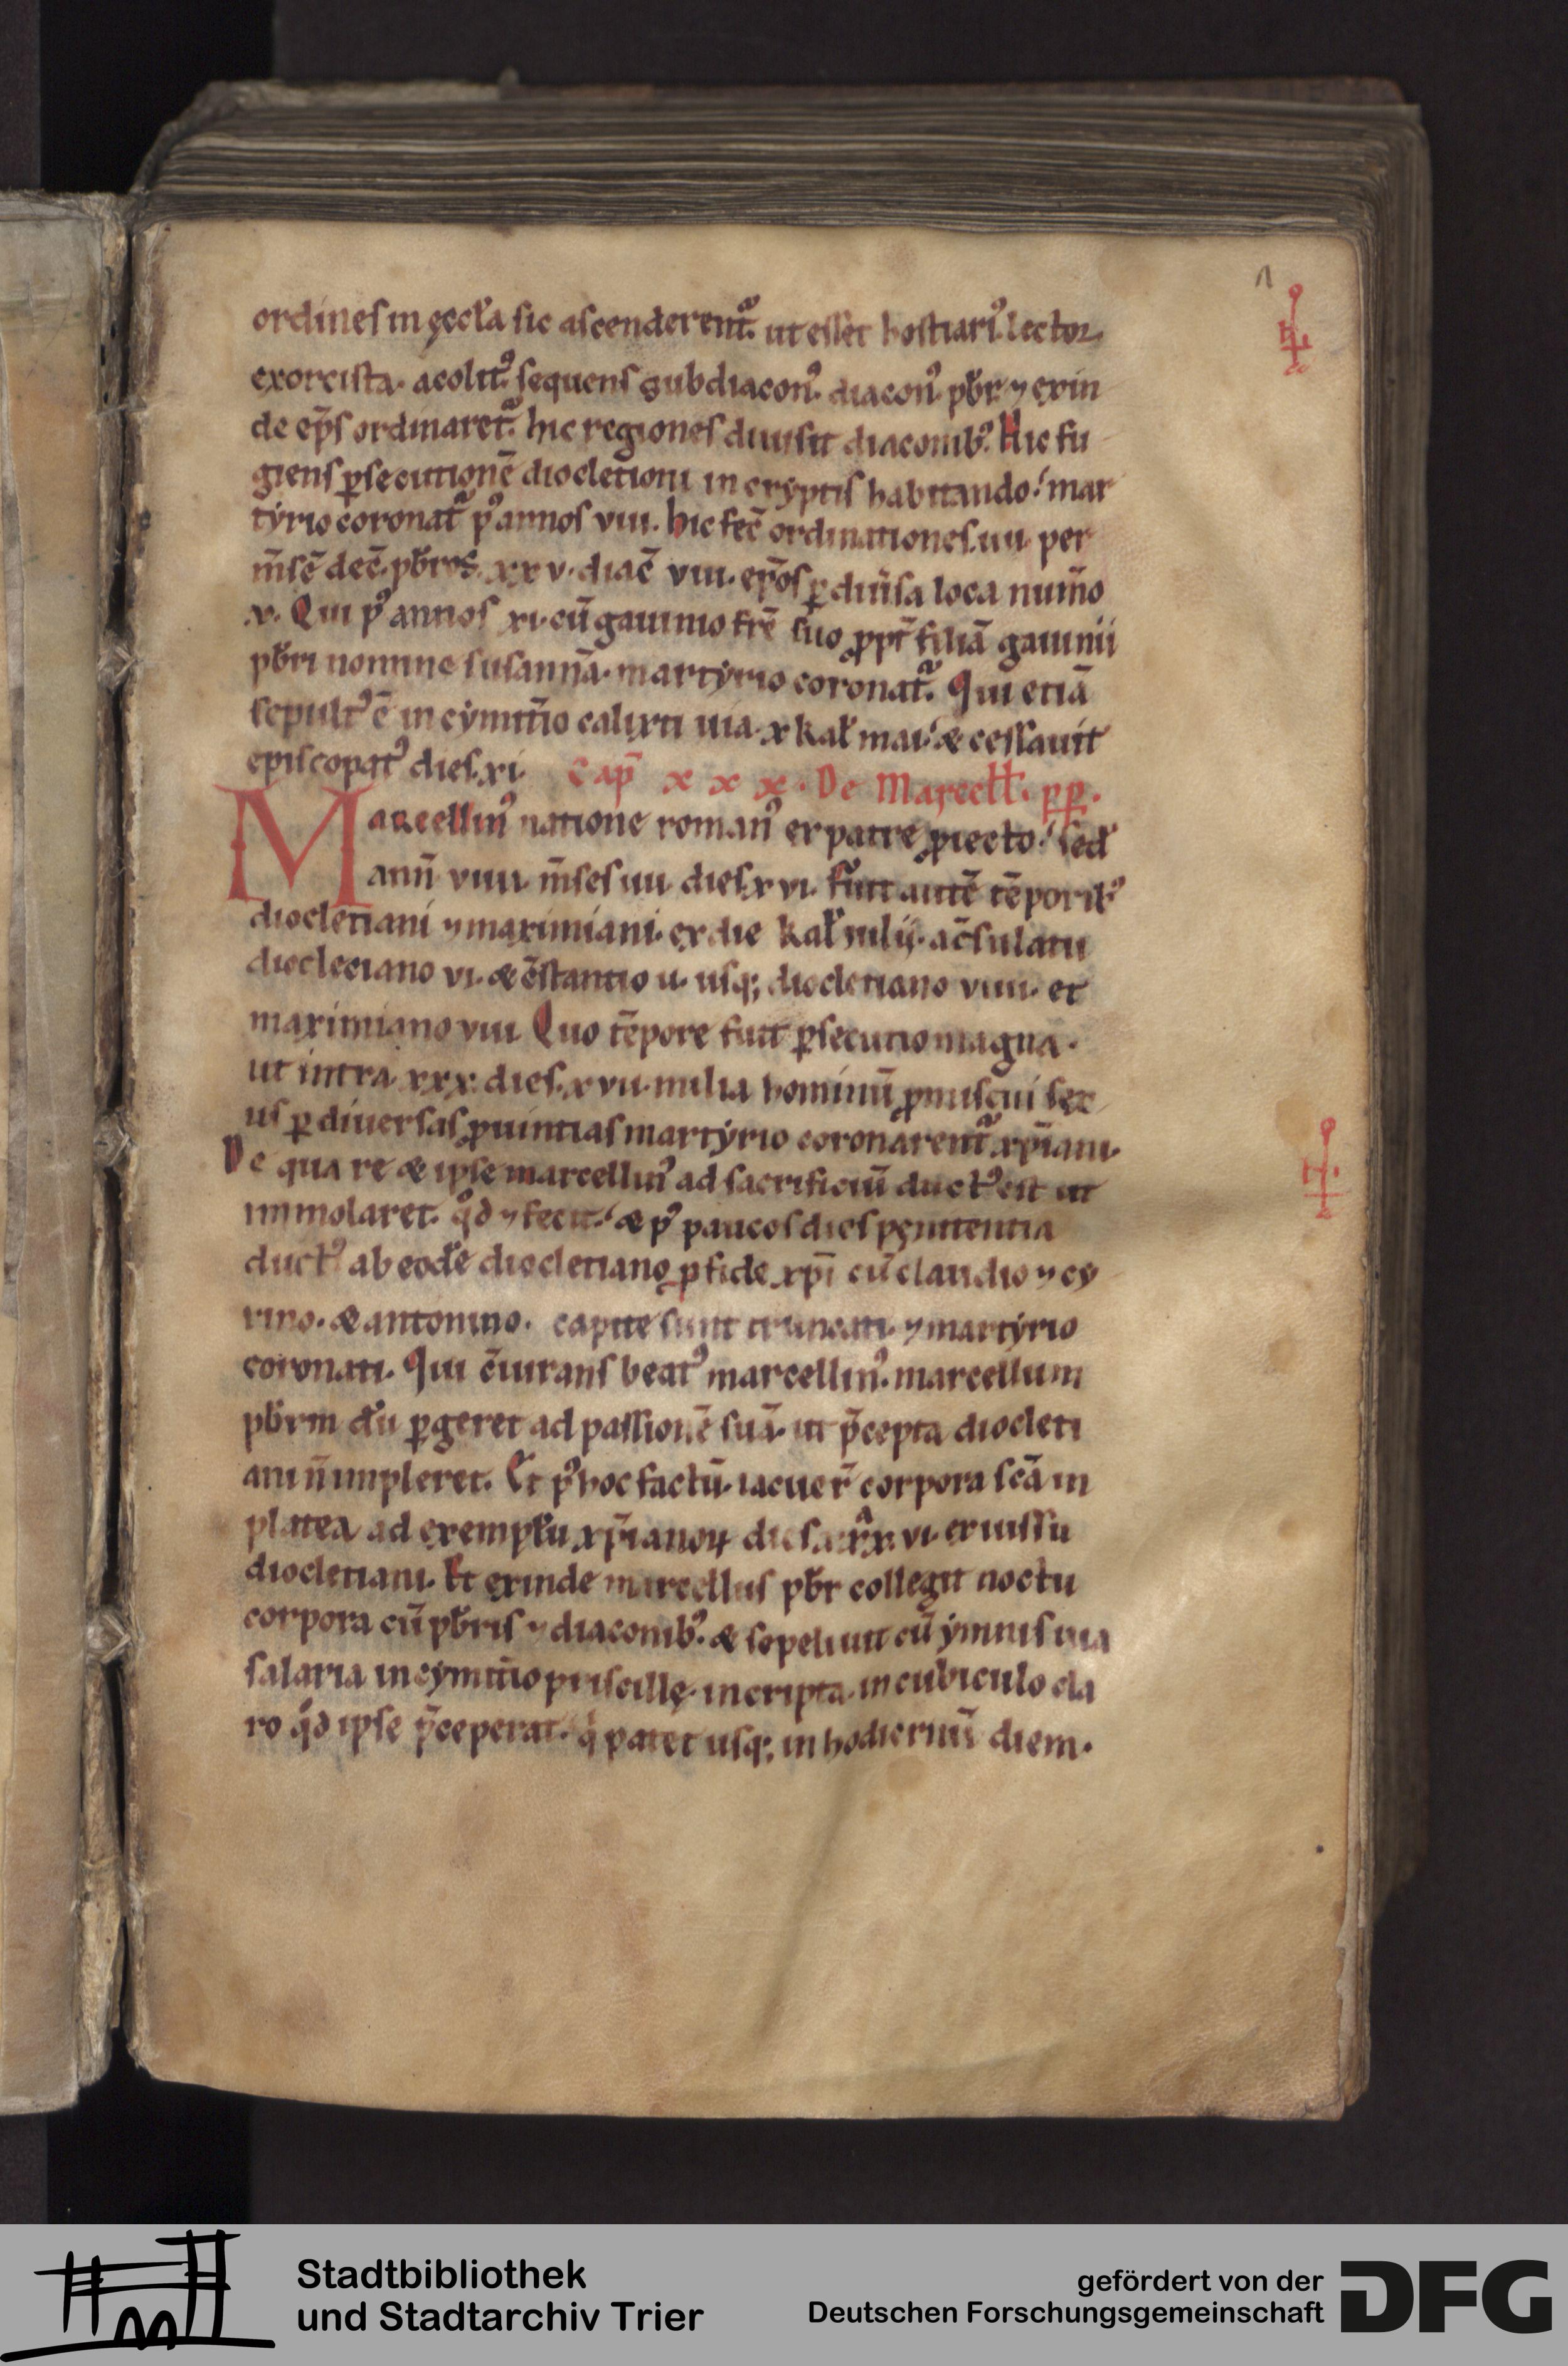 1
ordines in ęccl̄a sic ascenderent᷑. ut esset hostiariꝰ. lector.
exorcista. acolitꝰ. sequens subdiaconꝰ. diaconꝰ. pb̄r ⁊ exin
de ep̄s ordinaret᷑. hic regiones diuisit diaconibꝰ. Hic fu
giens ꝑsecutionē diocletioni in cryptis habitando. mar
tyrio coronat᷑ pꝰ annos viii. hic fec̄ ordinationes. iiii. per
m̄sē dec̄. pb̄ros. xxv. diac̄ viii. ep̄os ꝑ diūsa loca num̄o
v. Qui pꝰ annos xi. cū gauinio fr̄e suo ꝓpt̄ filiā gauinii
pb̄ri nomine susannā. martyrio coronat᷑. Qui etiā
sepultꝰ ē in cymit̄io calixti uia. x kal̄ mai. & cessauit
episcopatꝰ dies. xi. Cap̄ xxx. De Marcell̄. pp.
Marcellinꝰ natione romanꝰ ex patre ꝓiecto. sed̄
ann̄ viiii. m̄ses iiii. dies. xvi. fuit autē tēporibꝰ
diocletiani ⁊ maximiani. ex die kal̄ iulii. a c̄sulatu
diocleciano vi. & c̄stantio u. usq; diocletiano viiii. et
maximiano viii Quo tēpore fuit ꝑsecutio magna.
ut intra xxx. dies. xvii. milia hominū ꝓmiscui sex
us ꝑ diuersas ꝓuintias martyrio coronarent᷑ xp̄iani.
De qua re & ipse marcellinꝰ ad sacrificiū ductꝰ est ut
immolaret. qd̄ ⁊ fecit. & pꝰ paucos dies pęnitentia
ductꝰ ab eodē diocletiano ꝓ fide xp̄i cū claudio ⁊ cy
rino. & antonino. capite sunt truncati. ⁊ martyrio
coronati. Qui c̄iurans beatꝰ marcellinꝰ. marcellum
pb̄rm dū ꝑgeret ad passionē suā. ut p̄cepta diocleti
ani n̄ impleret. Et pꝰ hoc factū. iacuer̄ corpora sc̄a in
platea ad exempl̄u xp̄ianoꝝ dies. xx. vi. ex iussu
diocletiani. Et exinde marcellus pb̄r collegit noctu
corpora cū pb̄ris ⁊ diaconibꝰ. & sepeliuit cū ymnis uia
salaria in cymit̄io priscillę. in cripta. in cubiculo cla
ro qd̄ ipse p̄ceperat. qd̄ patet usq; in hodiernū diem.
Stadtbibliothek
und Stadtarchiv Trier
gefördert von der
Deutschen Forschungsgemeinschaft
DFG